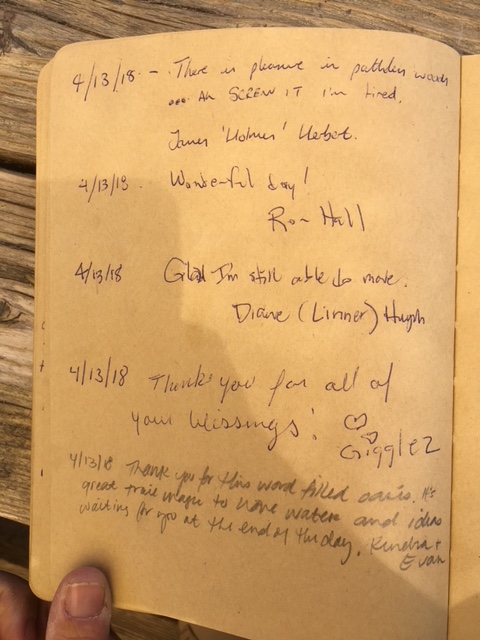 4/13/18 - There is pleasure in pathless woods
... Ah SCREW IT i'm tired.
James 'Holmes' Herbert.
4/13/18. Wonderful day!
Ron Hall
4/13/18 Glad I'm still able to move.
Diane (Linner) Hugh
4/13/18 Thanks you for all of
your blessings!
Gigglez
4/13/18 Thank you for this word filled oasis. It's
great trail magic to have water and ideas
waiting for you at the end of the day. Kendra +
Evan